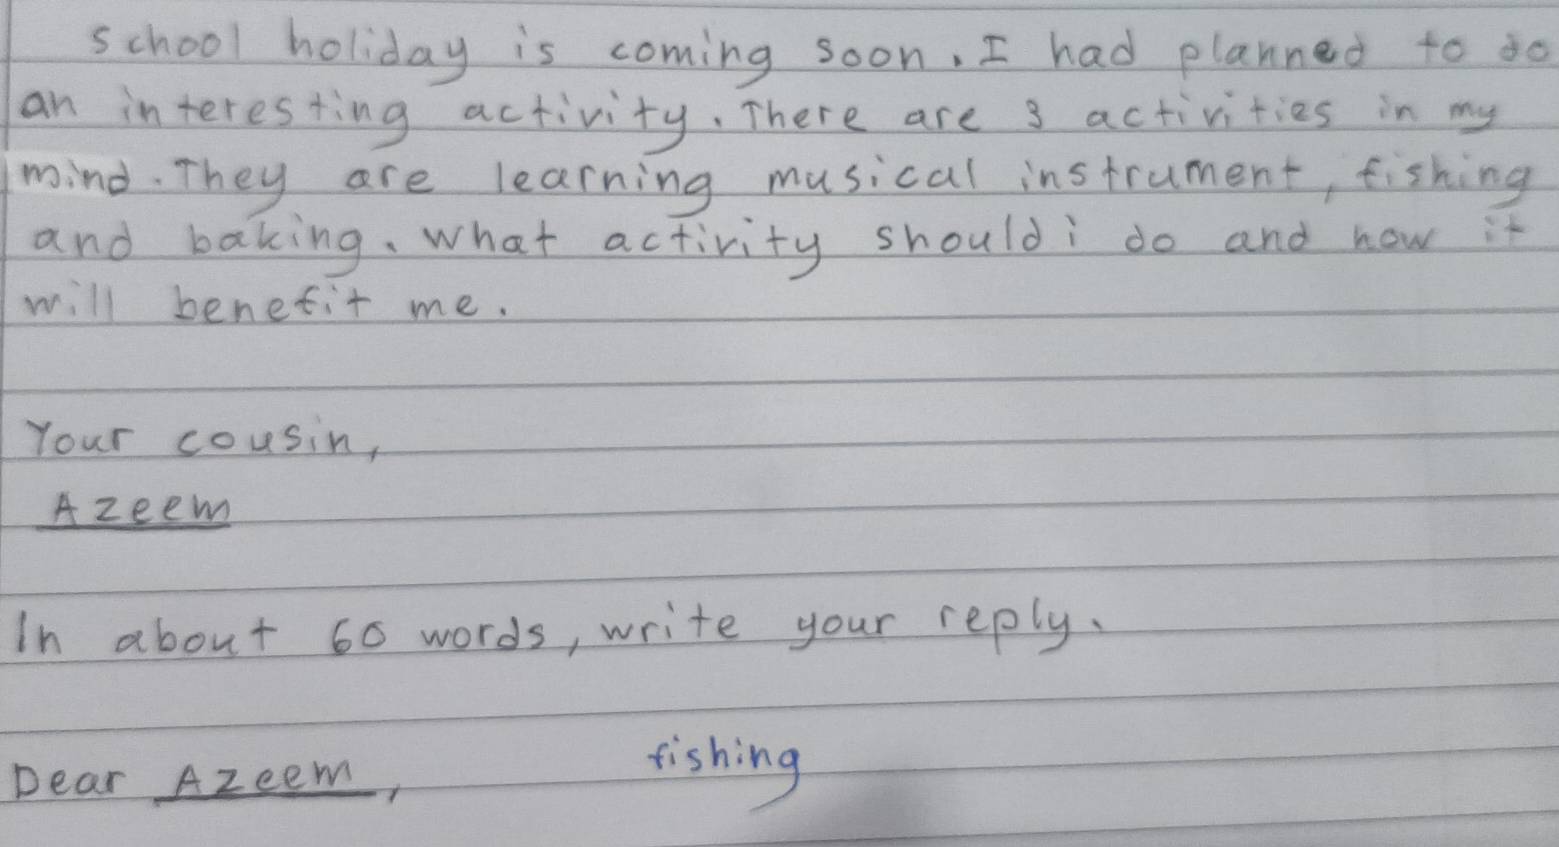 school holiday is coming soon. I had planned to do
an interesting activity. There are 3 activities in my
mind. They are learning musical instrument, fishing
and baking. What activity should i do and how it
will benefit me.
Your cousin,
Azeem
In about 60 words, write your reply.
Dear Azeem, fishing